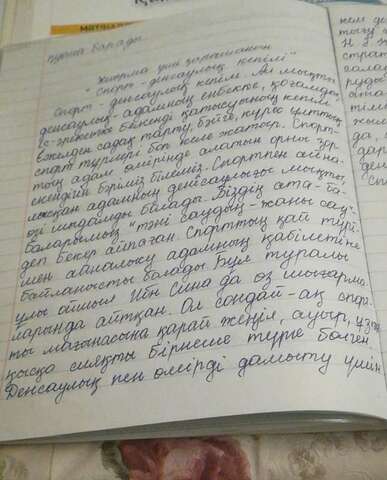 МАТЕМ
туына барады.
Жиырма үшін қарашаның
"Спорт - денсаулық кепілі"
Спорт - денсаулық кепілі. Ал мықты
денсаулық - адамның еңбекке, қоғамдық
іс-әрекетке белсенді қатысуының кепілі
Ежелден садақ тарту, бәйге, күрес ұлттық
спорт түрлері боп келе жатыр. Спорт-
тың адам өмірінде алатын орны зор
екендігін бәріміз білеміз. Спортпен айна-
лысқан адамның денсаулығы мықты,
өзі шыдамды болады. Біздің ата-ба-
баларымыз "тәні саудың - жаны сау"
деп бекер айтпаған. Спорттың қай түрі-
мен айналысу адамның қабілетіне
байланысты болады. Бұл туралы
ұлы ғалым Ибн Сина да өз шығарма
ларында айтқан. Ол сондай-ақ спор-
ты мағынасына қарай жеңіл, ауыр, ұзақ
қысқа сияқты бірнеше түрге бөлген.
Денсаулық пен өмірді дамыту үшін